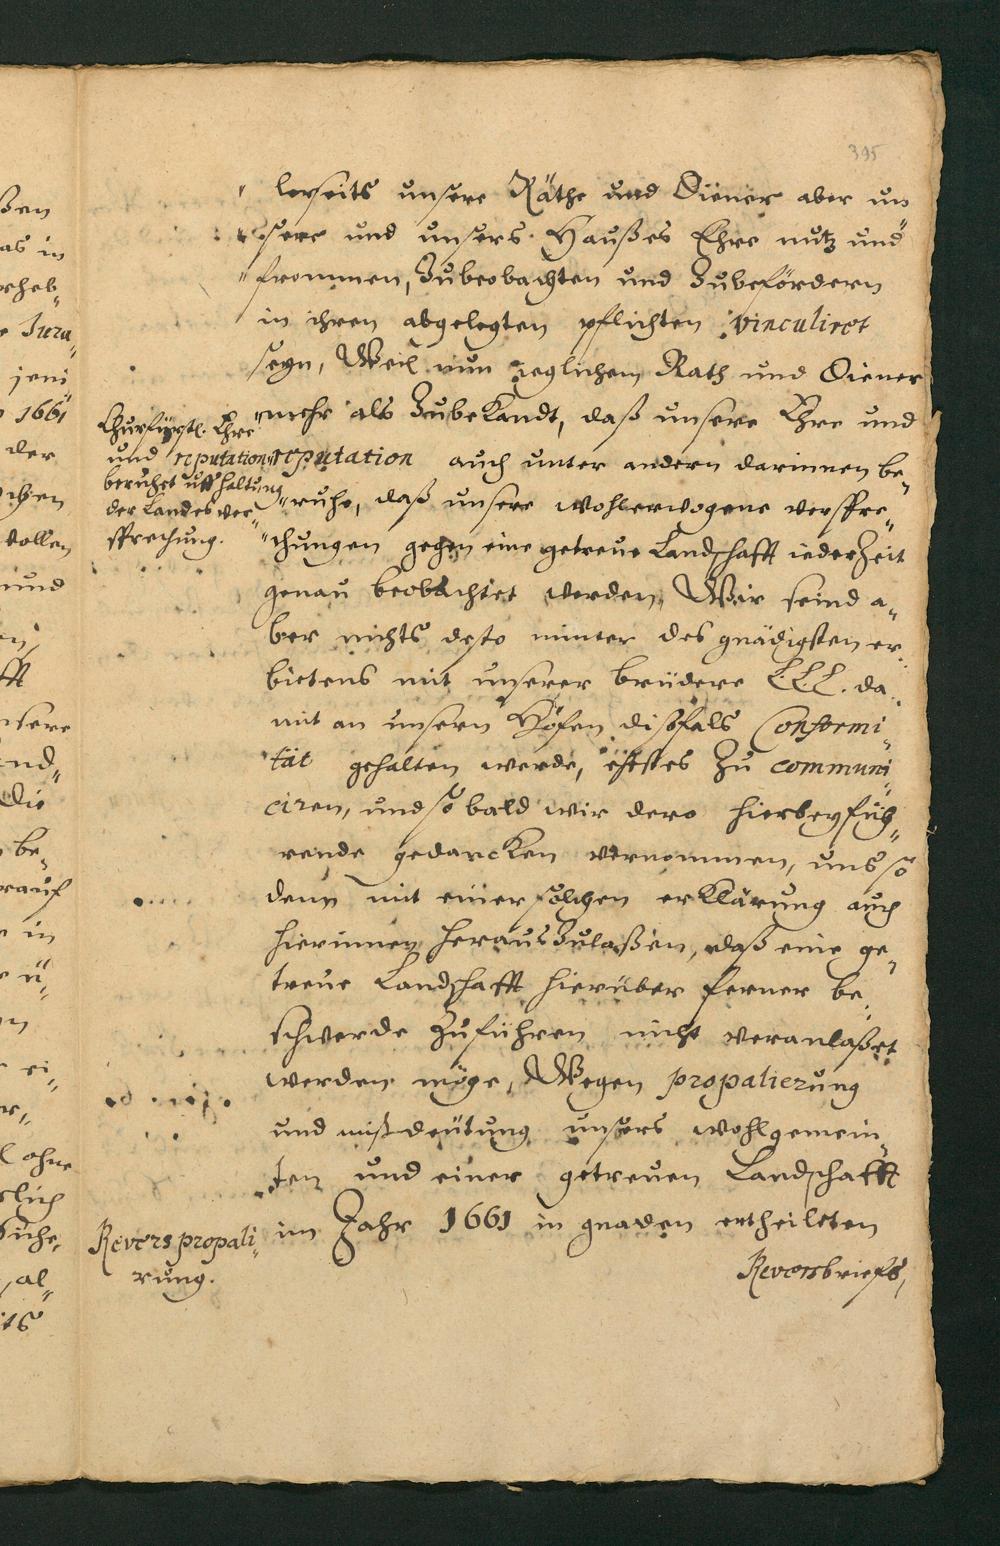 395
lerseits unsere Räthe und Diener aber un
sere und unsers Haußes Ehre nutz und
frommen, Zubeobachten und Zubefördern
in ihren abgelegten pflichten vinculiret
seyn, Weil nun jeglichem Rath und Diener
mehr als Zubekandt, daß unsere Ehre und
reputation auch unter andern darinnen be„
ruhe, daß unsere wohlerwogene verspre„
chungen gegen eine getreue Landschafft iederZeit
genau beobachtet werden, Wir seind a„
ber nichts desto minter des gnädigsten er„
bietens mit unserer brüdere L.L.L. da„
mit an unsern Höfen dißfals Conformi„
tät gehalten werde, ehstes Zu communi„
ciren, und so bald wir dero hierbeyfüh„
rende gedancken vernommen, uns so
dann mit einer solchen erklärung auch
hierinnen herausZulaßen, daß eine ge„
treue Landschafft hierüber ferner be„
schwerde Zuführen nicht veranlaßet
werden möge, Wegen propalierung
und mißdeütung unsers wohlgemein„
ten und einer getreuen Landschafft
im Jahr 1661 in gnaden ertheileten
Reversbriefs,
Churfürstl. Ehre
und reputation
beruhet uff haltung
der Landes ver„
sprechung.
Revers propali„
rung.
ßen
as in
Jura„
jeni
1661
der
chen
vollen
und
en,
fft
nsere
nd„
die
be„
rauf
in
ü„
en
ei„
er„
ohne
al„
its